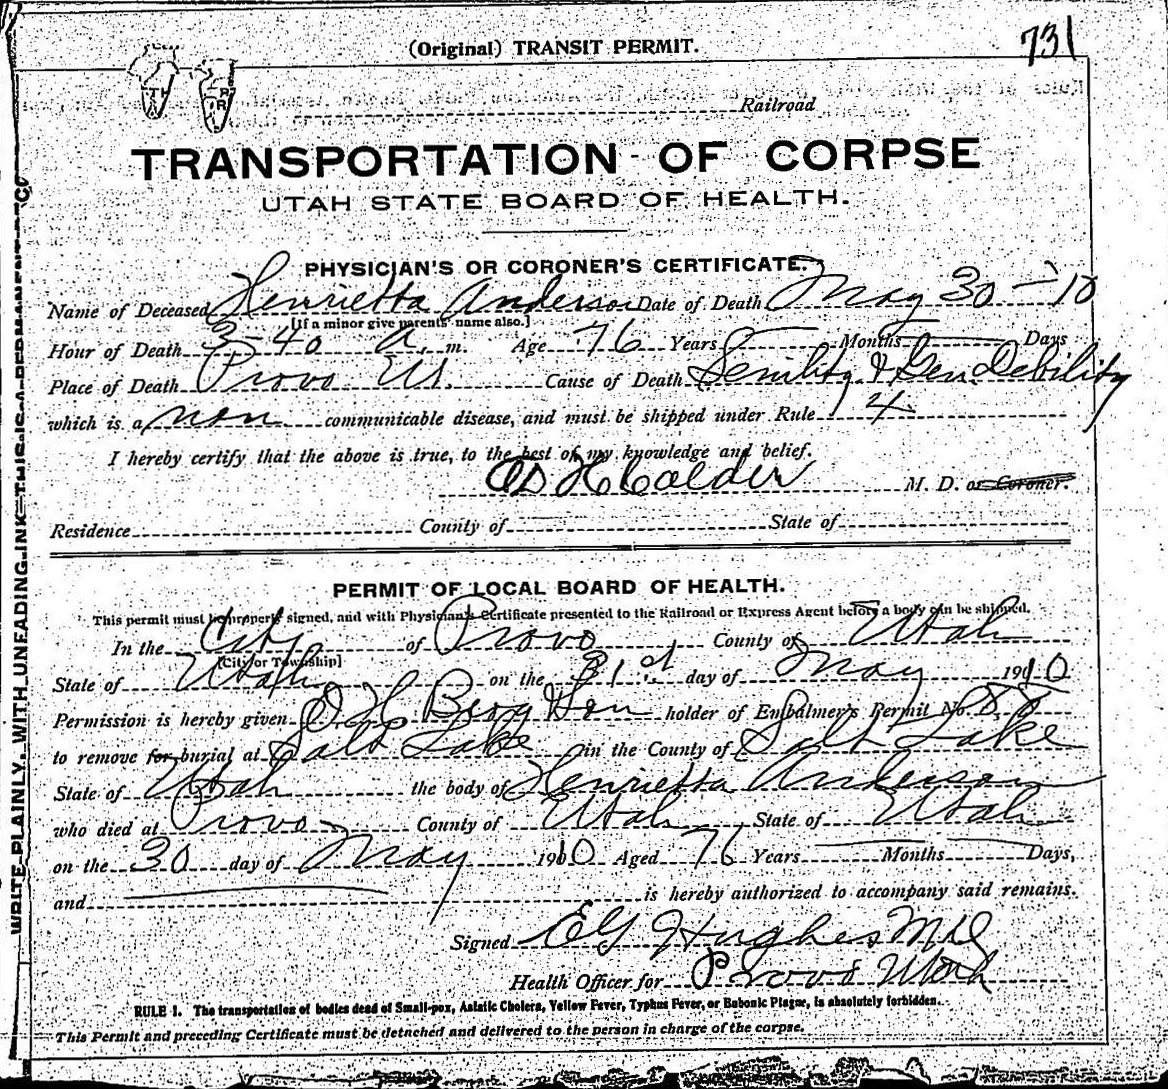 (Original) TRANSIT PERMIT.
731
Railroad
TRANSPORTATION OF CORPSE
UTAH STATE BOARD OF HEALTH.
PHYSICIAN'S OR CORONER'S CERTIFICATE.
Name of Deceased Henrietta Anderson Date of Death May 30 - '10
[If a minor give parents' name also.]
Hour of Death 3-40 a. m. Age 76 Years Months Days
Place of Death Provo Ut. Cause of Death Senility & Gen. Debility
which is a non communicable disease, and must be shipped under Rule 4
I hereby certify that the above is true, to the best of my knowledge and belief.
H Calder M. D. or Coroner.
Residence County of State of
PERMIT OF LOCAL BOARD OF HEALTH.
This permit must be properly signed, and with Physician's Certificate presented to the Railroad or Express Agent before a body can be shipped.
In the City of Provo County of Utah
[City or Township]
State of Utah on the 31st day of May 1910
Permission is hereby given O H Berg & Son holder of Enbalmer's Permit No. 88
to remove for burial at Salt Lake in the County of Salt Lake
State of Utah the body of Henrietta Anderson
who died at Provo County of Utah State of Utah
on the 30 day of May 1910 Aged 76 Years Months Days,
and is hereby authorized to accompany said remains.
Signed E G Hughes MD
Health Officer for Provo Utah
RULE 1. The transportation of bodies dead of Small-pox, Asiatic Cholera, Yellow Fever, Typhus Fever, or Bubonic Plague, is absolutely forbidden.
This Permit and preceding Certificate must be detached and delivered to the person in charge of the corpse.
WRITE PLAINLY, WITH UNFADING INK—THIS IS A PERMANENT